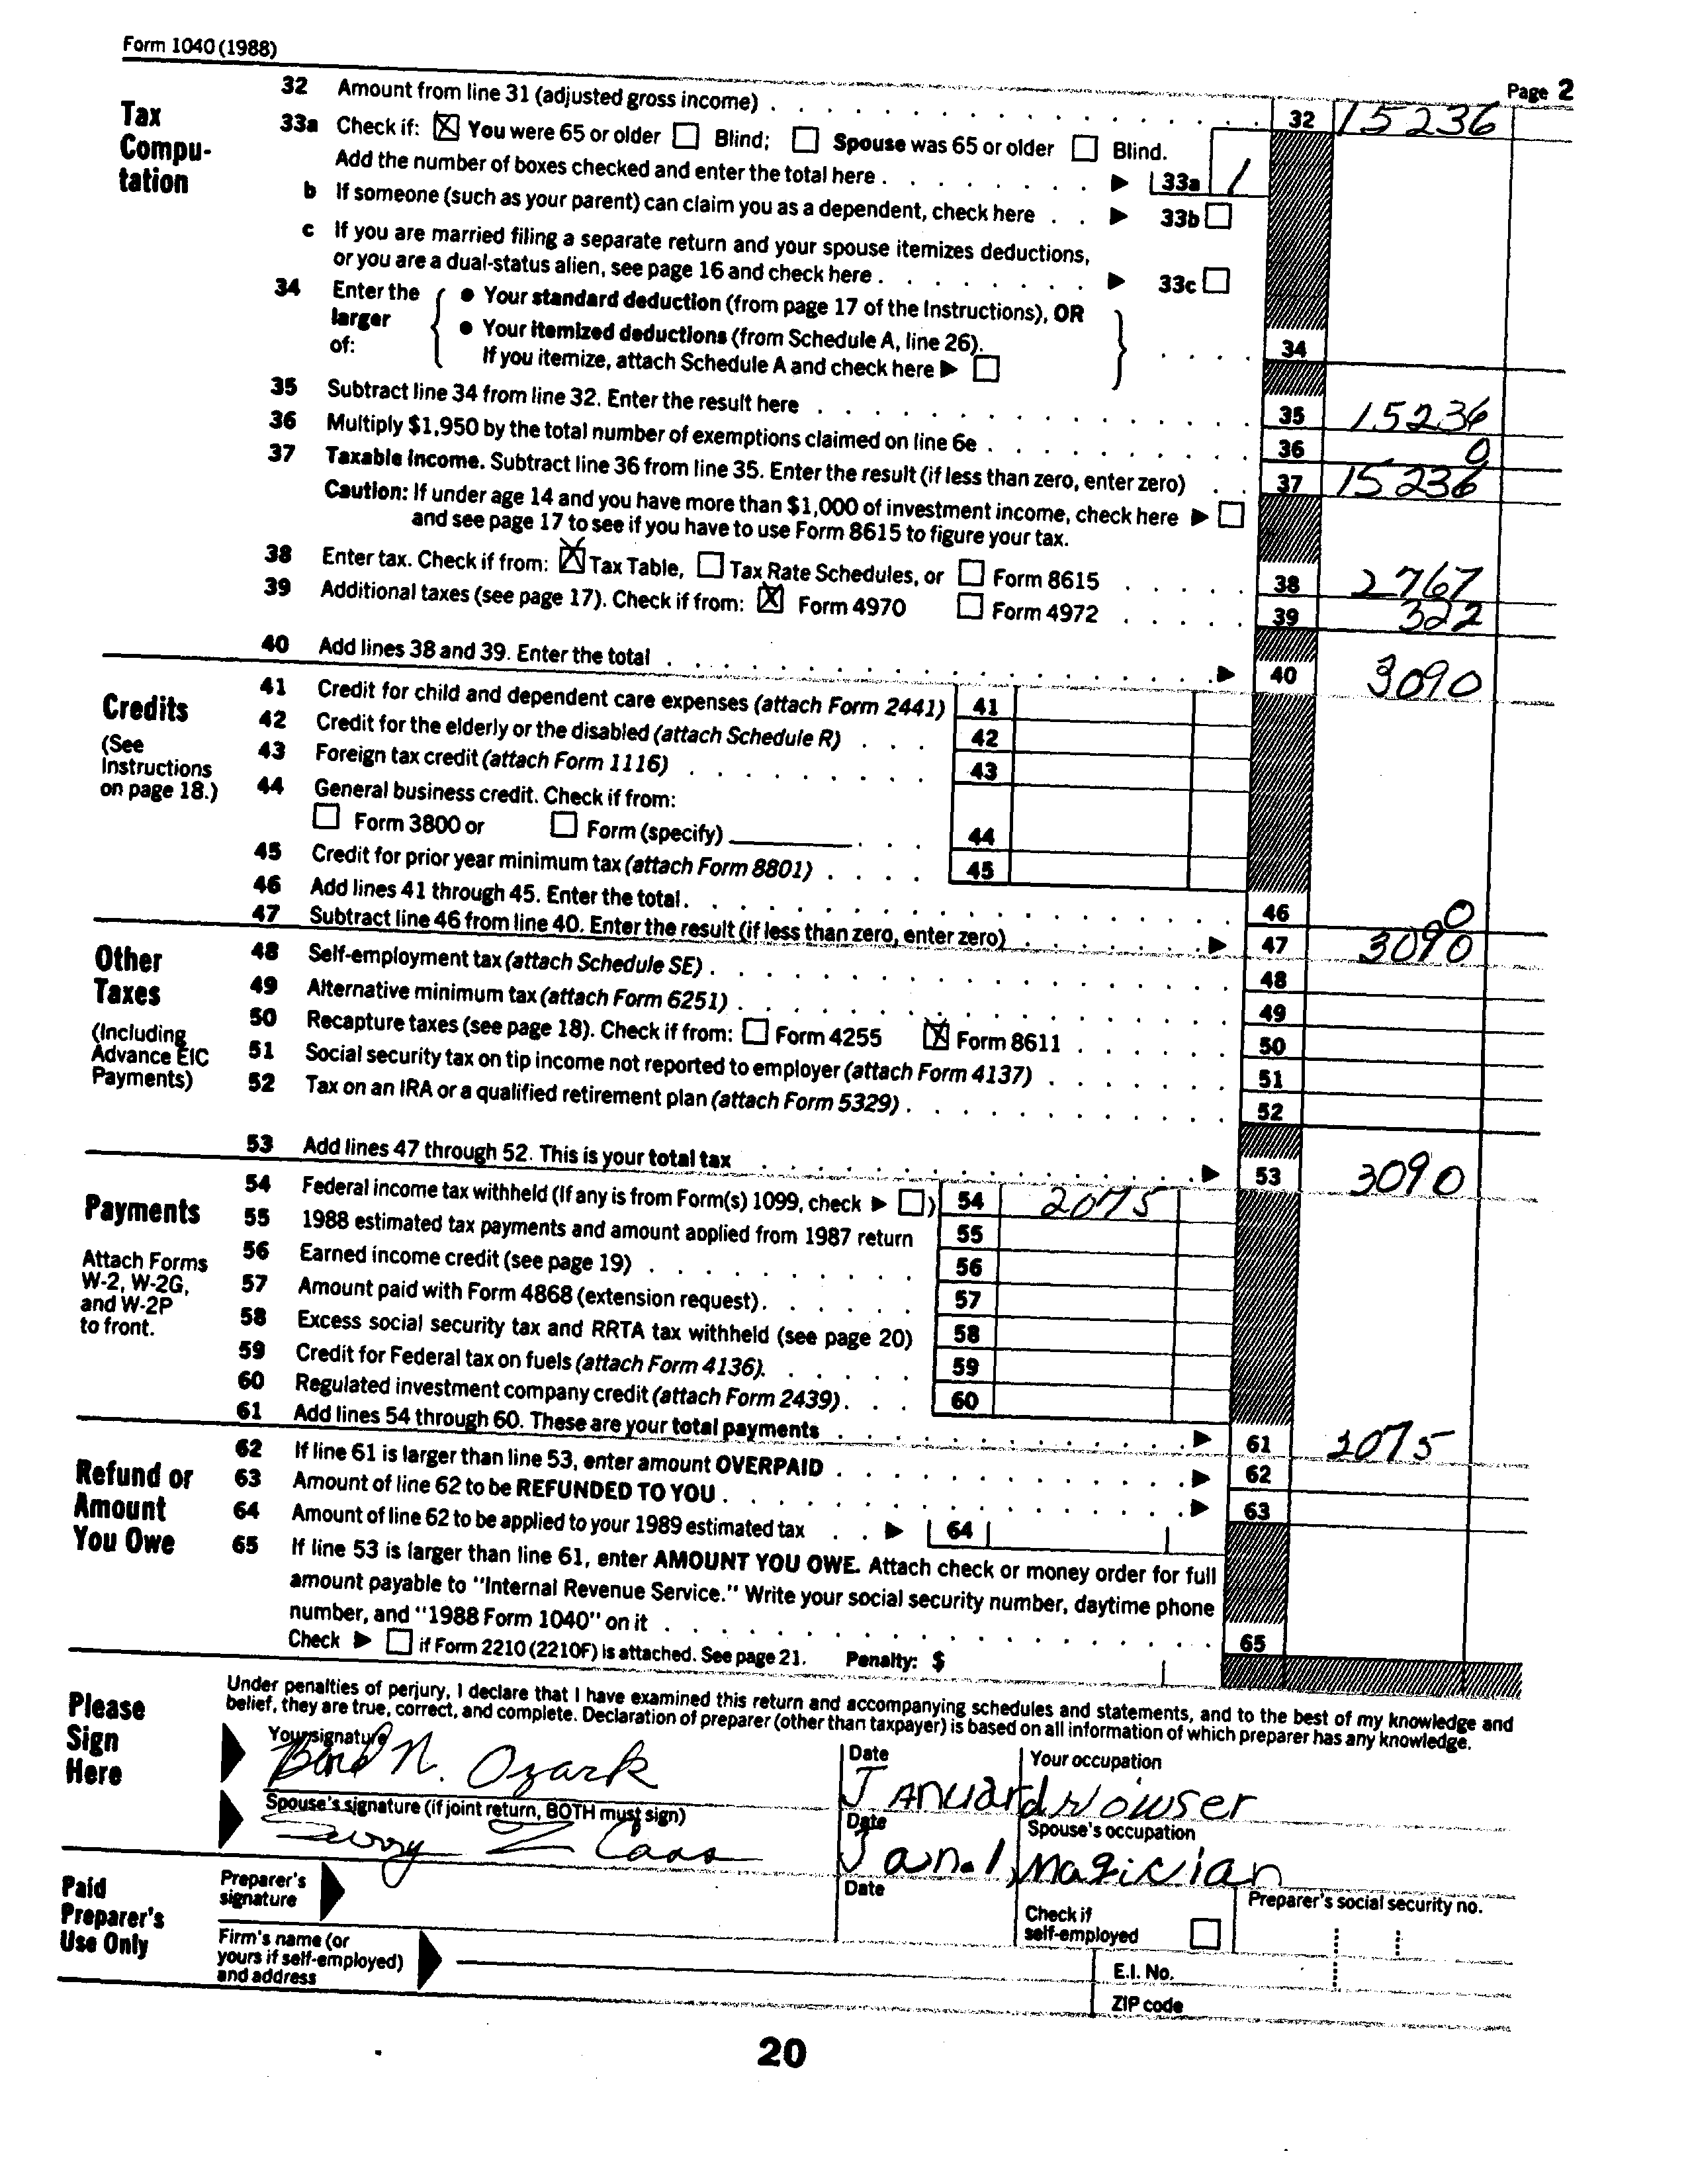 Form 1040 (1988)
Page 2
Tax Compu-tation
32 Amount from line 31 (adjusted gross income) 32 15236
33a Check if: ☒ You were 65 or older ☐ Blind; ☐ Spouse was 65 or older ☐ Blind.
Add the number of boxes checked and enter the total here ▶ 33a 1
b If someone (such as your parent) can claim you as a dependent, check here ▶ 33b ☐
c If you are married filing a separate return and your spouse itemizes deductions,
or you are a dual-status alien, see page 16 and check here ▶ 33c ☐
34 Enter the larger of: ● Your standard deduction (from page 17 of the Instructions), OR
● Your itemized deductions (from Schedule A, line 26).
If you itemize, attach Schedule A and check here ▶ ☐ 34
35 Subtract line 34 from line 32. Enter the result here 35 15236
36 Multiply $1,950 by the total number of exemptions claimed on line 6e 36 0
37 Taxable income. Subtract line 36 from line 35. Enter the result (if less than zero, enter zero) 37 15236
Caution: If under age 14 and you have more than $1,000 of investment income, check here ▶ ☐
and see page 17 to see if you have to use Form 8615 to figure your tax.
38 Enter tax. Check if from: ☒ Tax Table, ☐ Tax Rate Schedules, or ☐ Form 8615 38 2767
39 Additional taxes (see page 17). Check if from: ☒ Form 4970 ☐ Form 4972 39 322
40 Add lines 38 and 39. Enter the total ▶ 40 3090
Credits
(See Instructions on page 18.)
41 Credit for child and dependent care expenses (attach Form 2441) 41
42 Credit for the elderly or the disabled (attach Schedule R) 42
43 Foreign tax credit (attach Form 1116) 43
44 General business credit. Check if from:
☐ Form 3800 or ☐ Form (specify) 44
45 Credit for prior year minimum tax (attach Form 8801) 45
46 Add lines 41 through 45. Enter the total 46 0
47 Subtract line 46 from line 40. Enter the result (if less than zero, enter zero) ▶ 47 3090
Other Taxes
(Including Advance EIC Payments)
48 Self-employment tax (attach Schedule SE) 48
49 Alternative minimum tax (attach Form 6251) 49
50 Recapture taxes (see page 18). Check if from: ☐ Form 4255 ☒ Form 8611 50
51 Social security tax on tip income not reported to employer (attach Form 4137) 51
52 Tax on an IRA or a qualified retirement plan (attach Form 5329) 52
53 Add lines 47 through 52. This is your total tax ▶ 53 3090
Payments
Attach Forms W-2, W-2G, and W-2P to front.
54 Federal income tax withheld (If any is from Form(s) 1099, check ▶ ☐) 54 2075
55 1988 estimated tax payments and amount applied from 1987 return 55
56 Earned income credit (see page 19) 56
57 Amount paid with Form 4868 (extension request) 57
58 Excess social security tax and RRTA tax withheld (see page 20) 58
59 Credit for Federal tax on fuels (attach Form 4136) 59
60 Regulated investment company credit (attach Form 2439) 60
61 Add lines 54 through 60. These are your total payments ▶ 61 2075
Refund or Amount You Owe
62 If line 61 is larger than line 53, enter amount OVERPAID ▶ 62
63 Amount of line 62 to be REFUNDED TO YOU ▶ 63
64 Amount of line 62 to be applied to your 1989 estimated tax ▶ 64
65 If line 53 is larger than line 61, enter AMOUNT YOU OWE. Attach check or money order for full
amount payable to "Internal Revenue Service." Write your social security number, daytime phone
number, and "1988 Form 1040" on it 65
Check ▶ ☐ if Form 2210 (2210F) is attached. See page 21. Penalty: $
Please Sign Here
Under penalties of perjury, I declare that I have examined this return and accompanying schedules and statements, and to the best of my knowledge and
belief, they are true, correct, and complete. Declaration of preparer (other than taxpayer) is based on all information of which preparer has any knowledge.
Your signature Date Your occupation
N. Ozark
Spouse's signature (if joint return, BOTH must sign) Date Spouse's occupation
Z Jan.1, Magician
Paid Preparer's Use Only
Preparer's signature Date Check if self-employed ☐ Preparer's social security no.
Firm's name (or yours if self-employed) and address E.I. No.
ZIP code
20